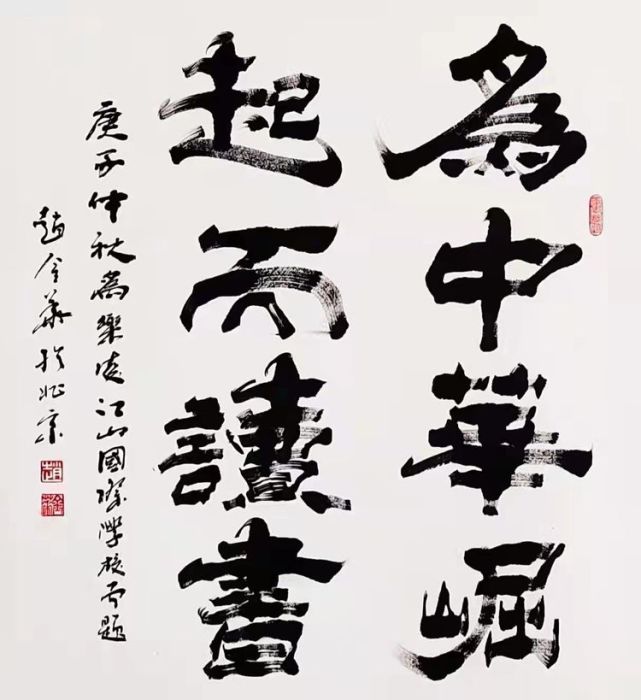 為中華崛
起而讀書
庚子仲秋為樂清江山國際學校命題
趙金華於北京